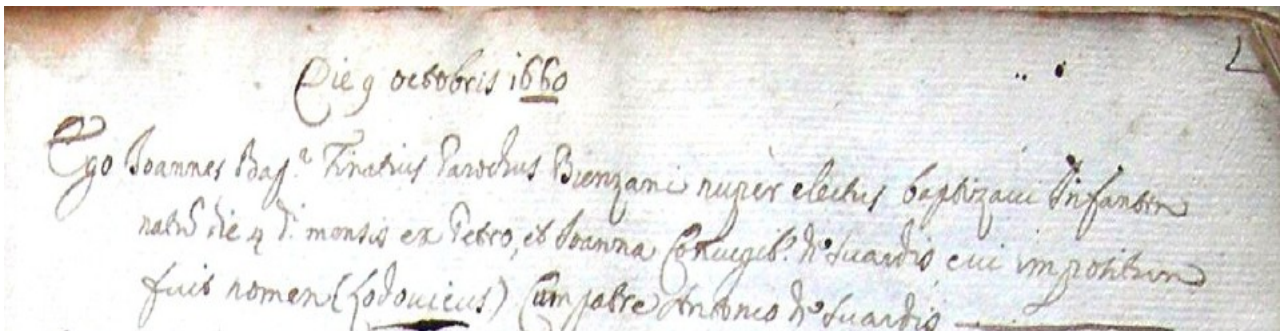 Die 9 octobris 1660
Ego Joannes Bap.ta Tinatius Parochus Bienzani nuper electus baptizavi Infantem
natũ die 4 d. mensis ex Petro, et Joanna Conugib.s de Suardis, cui impositum
fuit nomen (Lodovicus) Compatre Antonio de Suardis